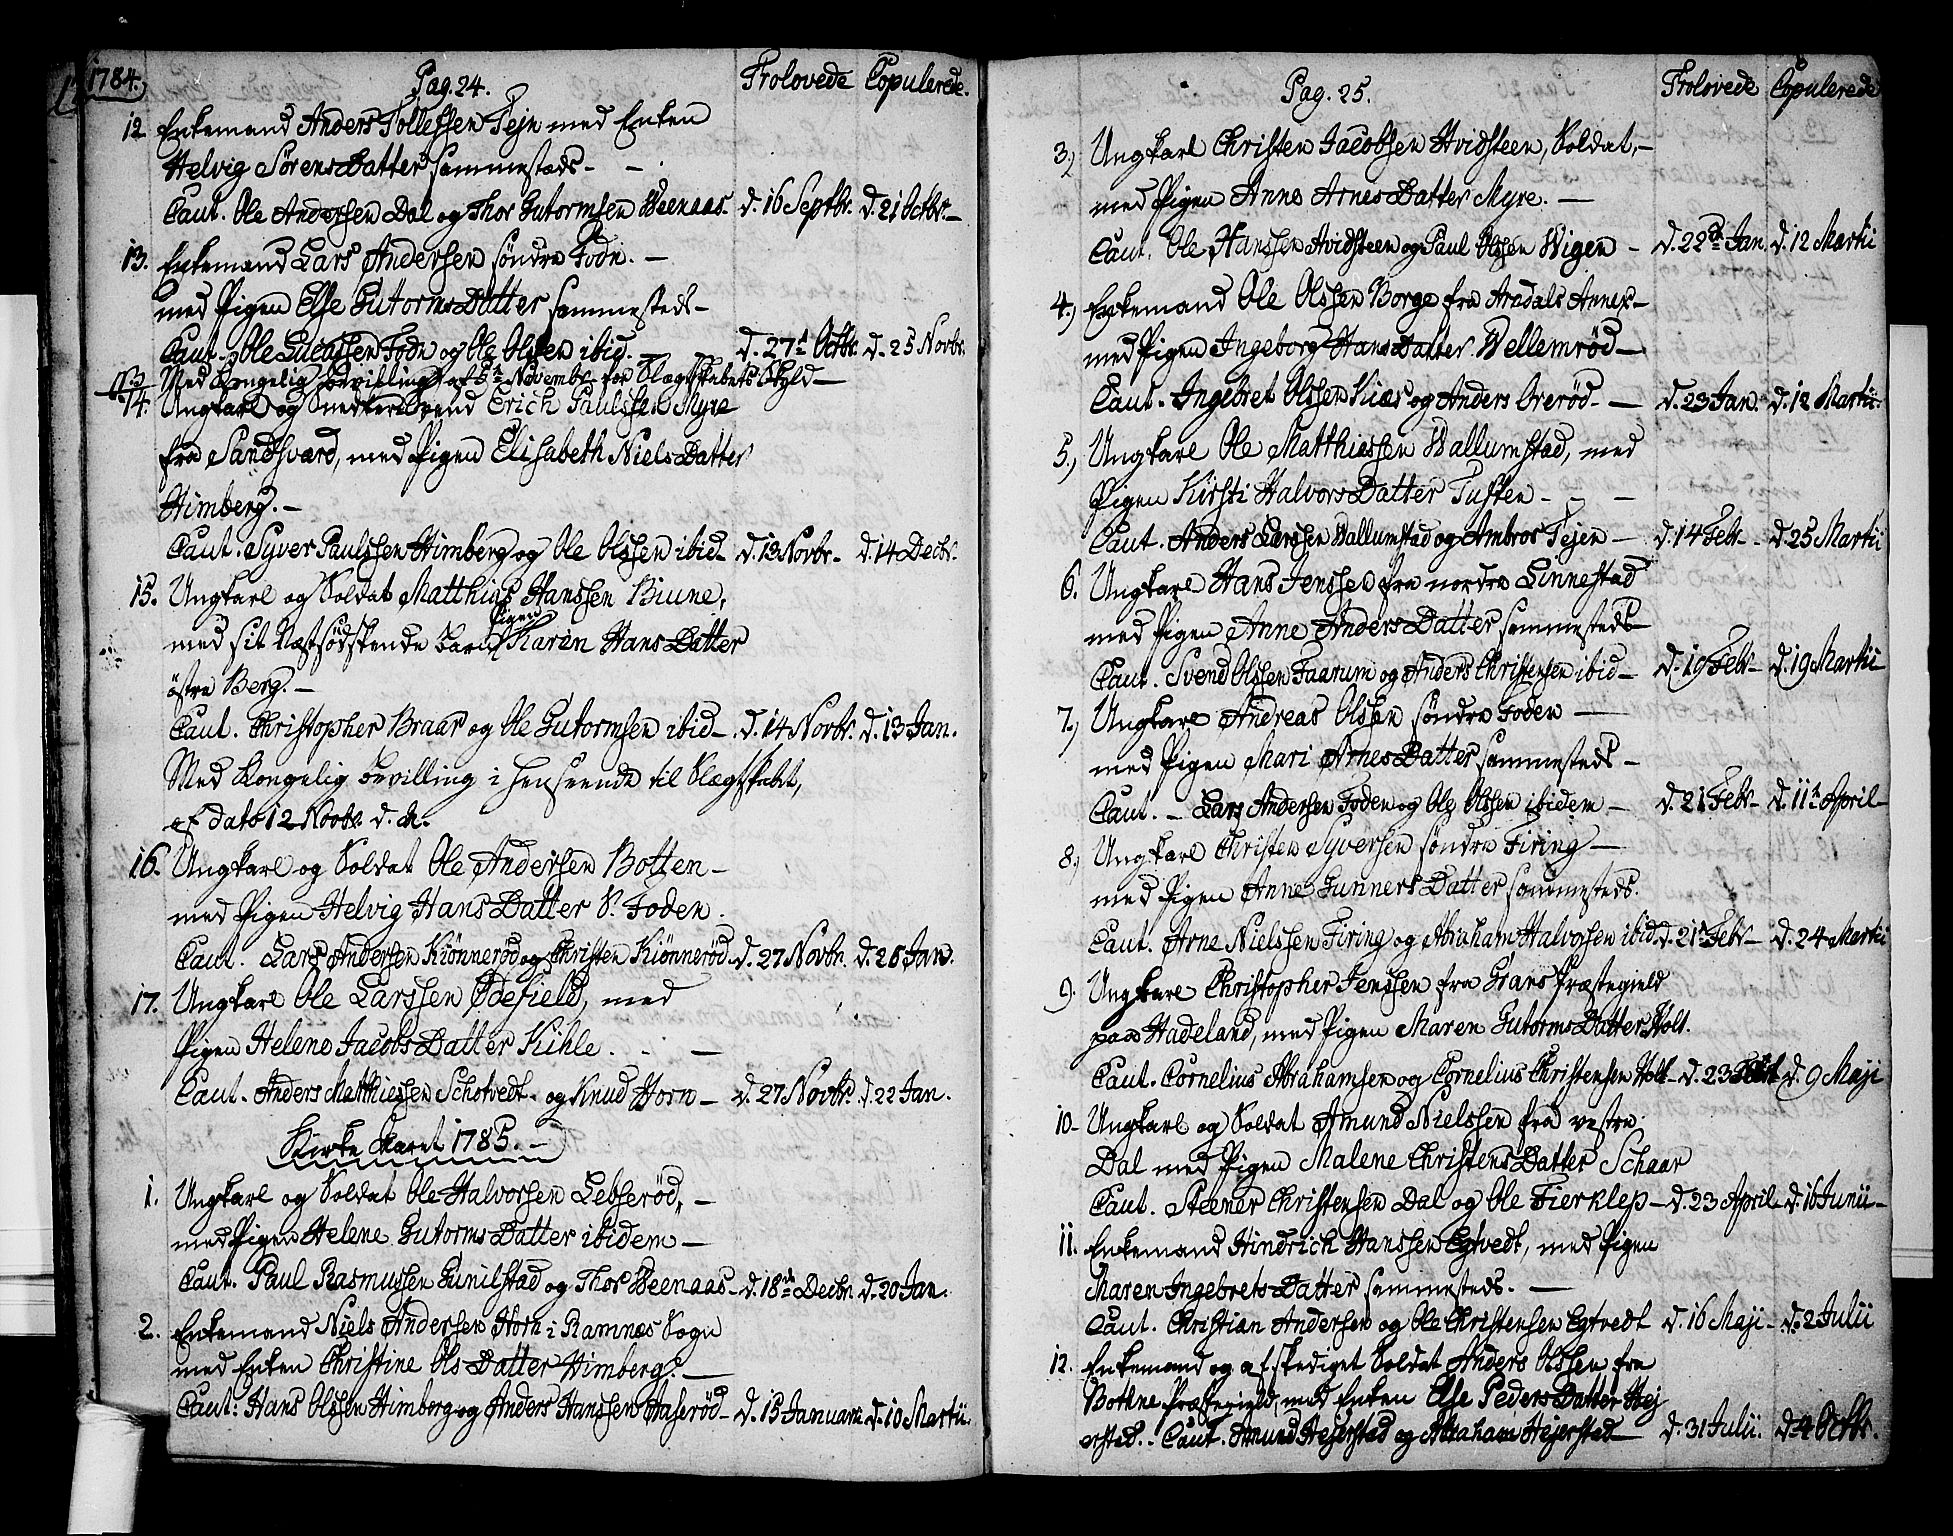 1784. Pag. 24. Trolovede Copulerede.
12 Enkemand Anders Tollefssen Tejn med Enken
Helvig Sørens Datter sammesteds —
Caut. Ole Andersen Dal og Thor Gutormsen Weenaas. d. 16 Septbr. d. 21 Octbr. —
13. Enkemand Lars Andersen søndre Fodn. —
med Pigen Else Gutorms Datter sammesteds —
Caut. Ole Lucassen Fodn og Ole Olssen ibid. d. 27de Octbr. d. 25 Novbr.
Med Kongelig Bevilling af 5te Novembr. for Slægtskabets Skyld —
14. Ungkarl og Snedkersvend Erich Paulssen Myre
fra Sandsværd, med Pigen Elisabeth Niels Datter
Himberg. —
Caut. Syver Paulssen Himberg og Ole Olssen ibid — d. 13 Novbr. d. 14 Decbr.
15. Ungkarl og Soldat Matthias Hanssen Biune,
med sit Næstsødskende Barn Pigen Karen Hans Datter
østre Berg. —
Caut. Christopher Braar og Ole Gutormsen ibid — d. 14 Novbr. d. 13 Jan.
Med Kongelig Bevilling i Henseende til Slægtskabet,
af dato 12 Novbr. d. A.
16. Ungkarl og Soldat Ole Andersen Botten —
med Pigen Helvig Hans Datter S. Foden.
Caut. Lars Andersen Kiønnerød og Christen Kiønnerød. d. 27 Novbr. d. 26 Jan.
17. Ungkarl Ole Larssen Ødefield, med
Pigen Helene Jacobs Datter Kihle. —
Caut. Anders Matthiessen Schotvedt og Knud Horn — d. 27 Novbr. d. 22 Jan.
Kirke Aaret 1785. —
1. Ungkarl og Soldat Ole Halvorsen Lebserød, —
med Pigen Helene Gutorms Datter ibidem —
Caut. Paul Rasmussen Gunilstad og Thor Weenaas — d. 18de Decbr. d. 20 Jan.
2. Enkemand Niels Andersen Horn i Ramnæs Sogn
med Enken Christine Ols Datter Himberg. —
Caut: Hans Olssen Himberg og Anders Hanssen Haserød — d. 15 Januarii d. 10 Martii.
Pag. 25. Trolovede Copulerede
3.) Ungkarl Christen Jacobsen Hvidsteen, Soldat, —
med Pigen Anne Arnes Datter Myre. —
Caut. Ole Hanssen Hvidsteen og Paul Olssen Wigen — d. 22de Jan. d. 12 Martii
4.) Enkemand Ole Olssen Borge fra Aradals Annex —
med Pigen Ingeborg Hans Datter Wellemrød —
Caut. Ingebret Olssen Kiæs og Anders Orerød — d. 23 Jan. d. 12 Martii.
5.) Ungkarl Ole Matthiessen Wallumstad, med
Pigen Kirsti Halvors Datter Tuften —
Caut. Anders Larssen Wallumstad og Ambros Tejen — d. 14 Febr. — d. 25 Martii
6. Ungkarl Hans Jenssen fra nordre Linnestad
med Pigen Anne Anders Datter sammesteds
Caut. Svend Olssen Faarum og Anders Christensen ibid — d. 19 Febr — d. 19 Martii
7.) Ungkarl Andreas Olssen søndre Foden —
med Pigen Mari Arnes Datter sammesteds —
Caut. — Lars Andersen Foden og Ole Olssen ibidem — d. 21 Febr — d. 11te April —
8.) Ungkarl Christen Syversen søndre Firing —
med Pigen Anne Gunners Datter sammesteds.
Caut. Arne Nielssen Firing og Abraham Halvorsen ibid. d. 21de Febr — d. 24 Martii
9. Ungkarl Christopher Jenssen fra Grans Præstegield
paa Hadeland, med Pigen Maren Gutorms Datter Holt.
Caut. Cornelius Abrahamsen og Cornelius Christensen Holt — d. 23 d. 9 Maji
10 — Ungkarl og Soldat Amund Nielssen fra vestre
Dal med Pigen Malene Christens Datter Schaar
Caut. Steener Christensen Dal og Ole Fierklep — d. 23 April — d. 16 Junii —
11. Enkemand Hindrich Hanssen Egtvedt, med Pigen
Maren Ingebrets Datter sammesteds. —
Caut. Christian Andersen og Ole Christensen Egtvedt d. 16 Maji — d. 2 Julii
12. Enkemand og afskediget Soldat Anders Olssen fra
Botne Præstegield, med Enken Else Peders Datter Hej
erstad. — Caut. Amund Hejerstad og Abraham Hejerstad — d. 31 Julii. d. 4 Octbr.